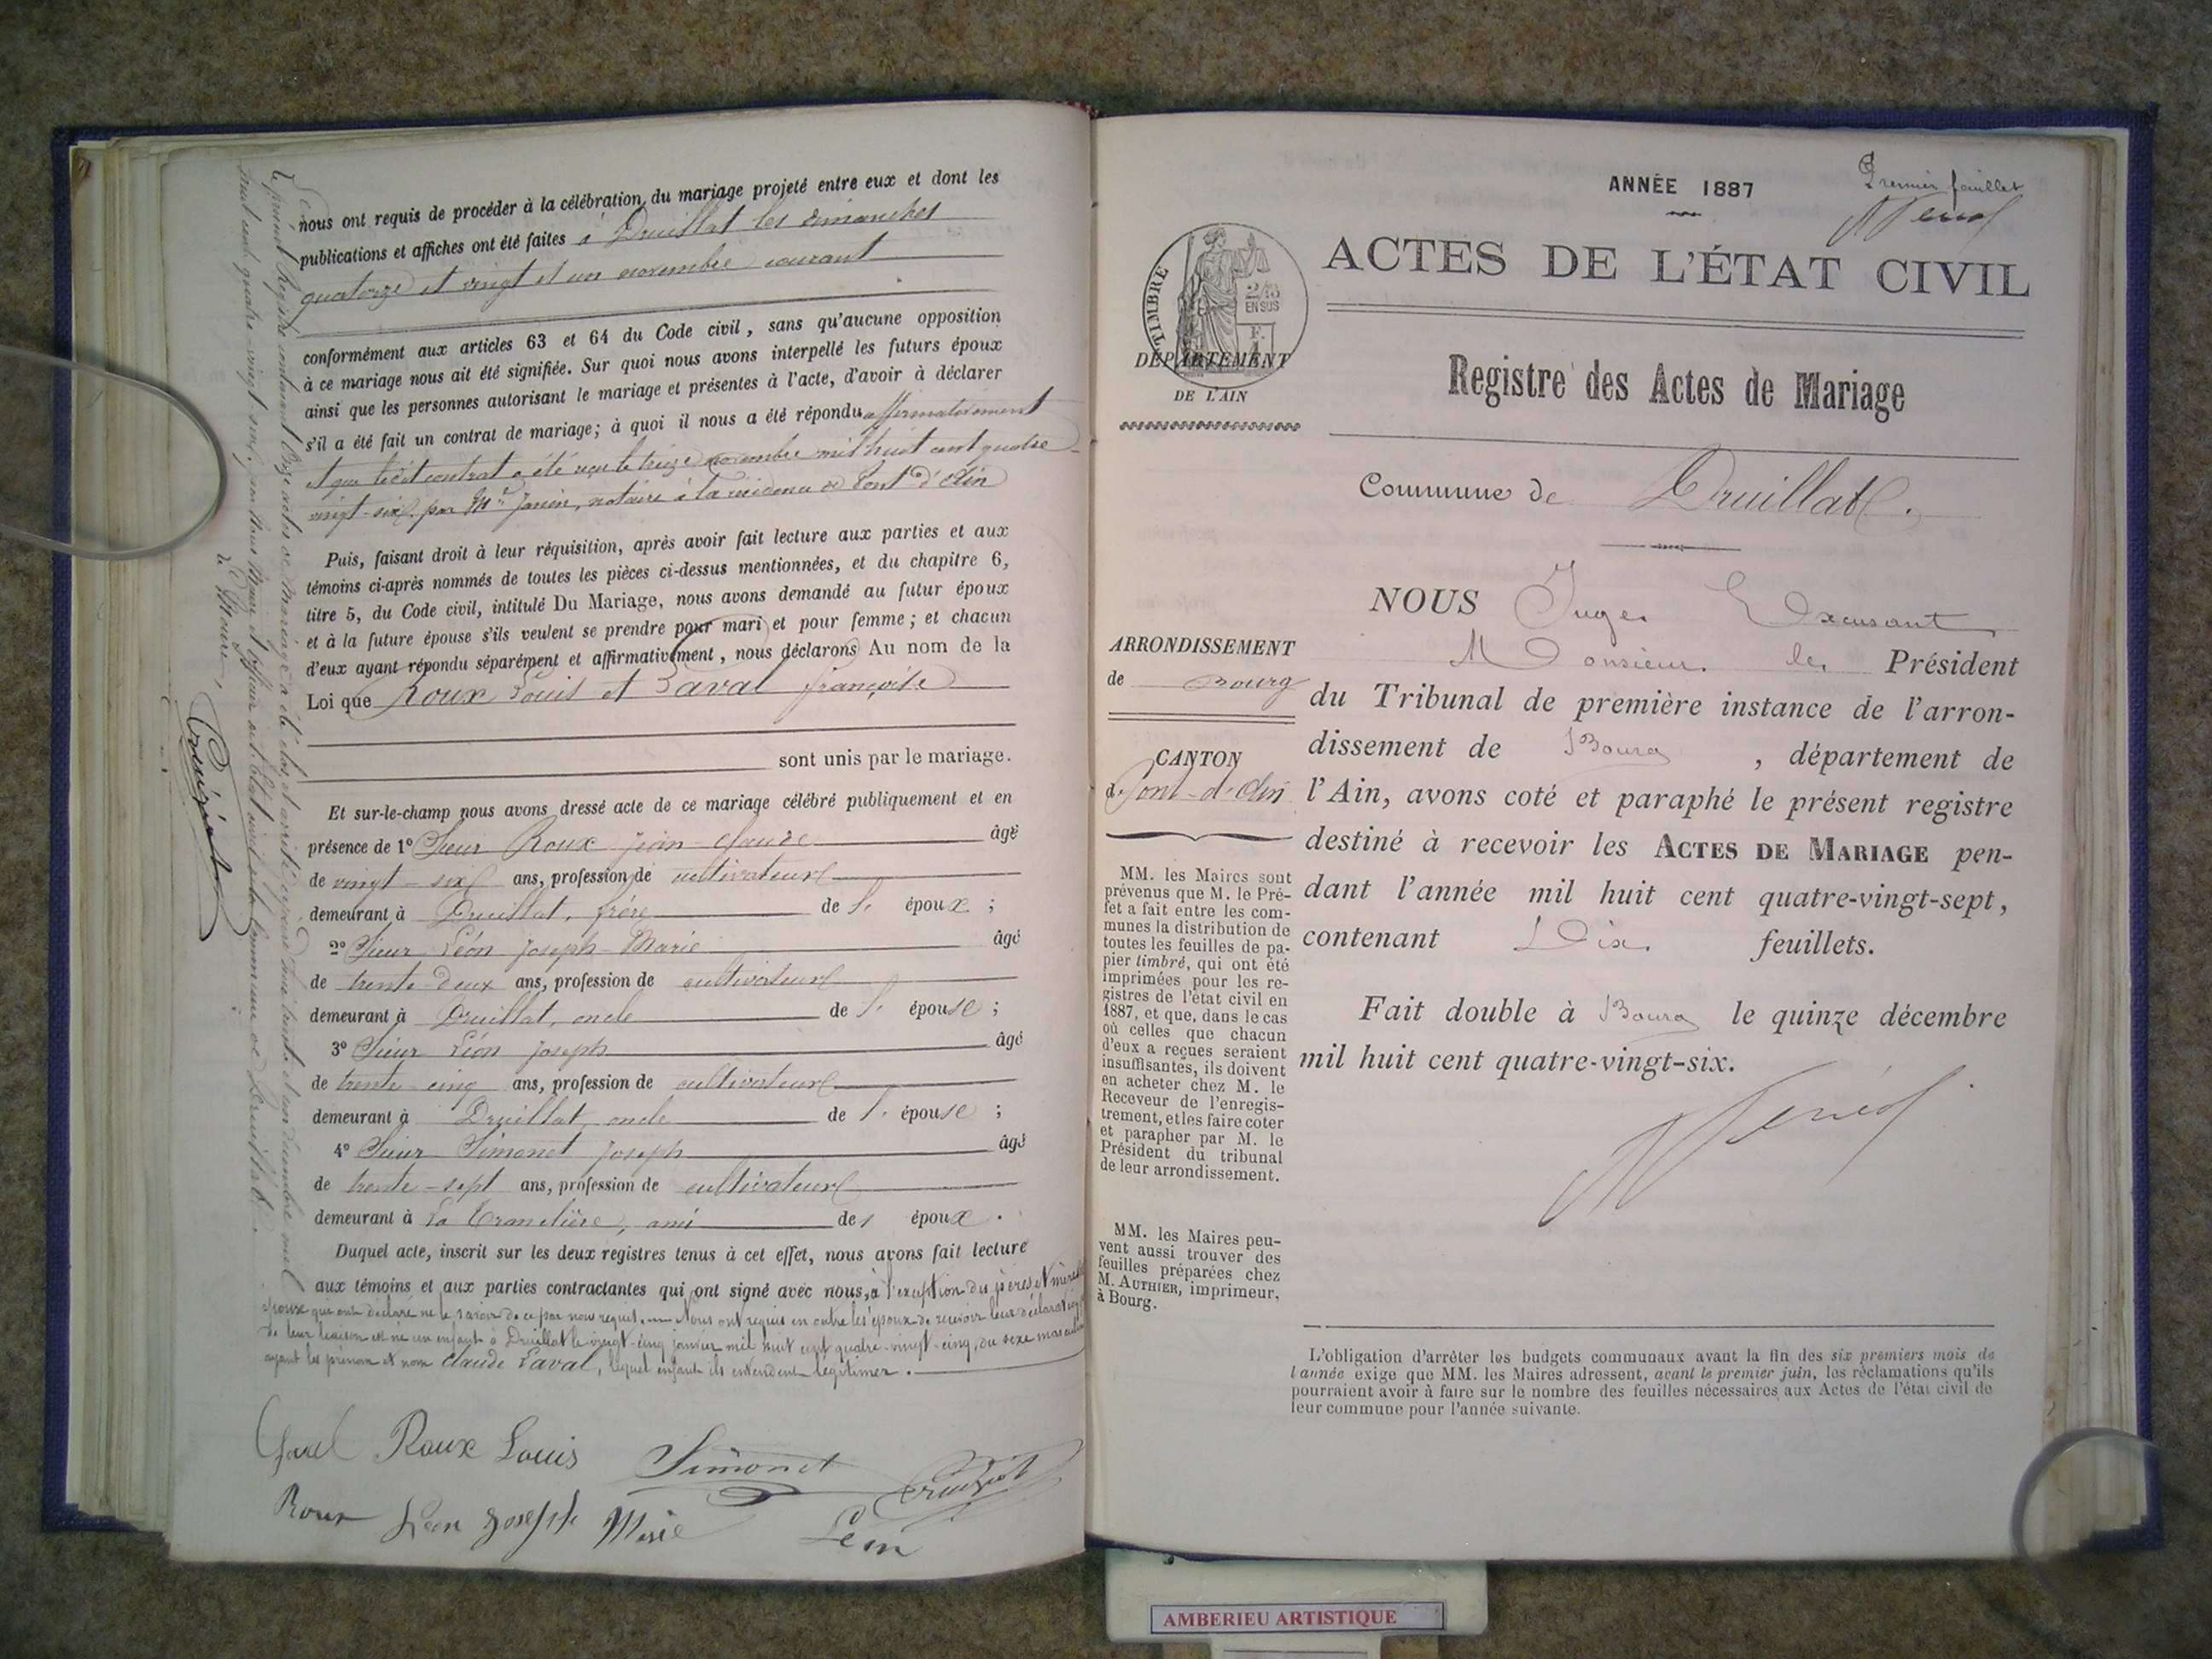 nous ont requis de procéder à la célébration du mariage projeté entre eux et dont les
publications et affiches ont été faites à Druillat les dimanches
quatorze et vingt et un novembre courant
conformément aux articles 63 et 64 du Code civil, sans qu'aucune opposition
à ce mariage nous ait été signifiée. Sur quoi nous avons interpellé les futurs époux
ainsi que les personnes autorisant le mariage et présentes à l'acte, d'avoir à déclarer
s'il a été fait un contrat de mariage; à quoi il nous a été répondu affirmativement
et que ledit contrat a été reçu le treize novembre mil huit cent quatre
vingt-six par Me Janin, notaire à la résidence de Pont d'Ain
Puis, faisant droit à leur réquisition, après avoir fait lecture aux parties et aux
témoins ci-après nommés de toutes les pièces ci-dessus mentionnées, et du chapitre 6,
titre 5, du Code civil, intitulé Du Mariage, nous avons demandé au futur époux
et à la future épouse s'ils veulent se prendre pour mari et pour femme; et chacun
d'eux ayant répondu séparément et affirmativement, nous déclarons Au nom de la
Loi que Roux Louis et Laval françoise
sont unis par le mariage.
Et sur-le-champ nous avons dressé acte de ce mariage célébré publiquement et en
présence de 1º Sieur Roux Jean-Claude âgé
de vingt-six ans, profession de cultivateur
demeurant à Druillat, frère de l' époux ;
2º Sieur Léon Joseph-Marie âgé
de trente-deux ans, profession de cultivateur
demeurant à Druillat, oncle de l' épouse ;
3º Sieur Léon Joseph âgé
de trente-cinq ans, profession de cultivateur
demeurant à Druillat, oncle de l' épouse ;
4º Sieur Simonet Joseph âgé
de trente-sept ans, profession de cultivateur
demeurant à La Tranclière, ami des époux.
Duquel acte, inscrit sur les deux registres tenus à cet effet, nous avons fait lecture
aux témoins et aux parties contractantes qui ont signé avec nous, à l'exception des pères et mères
époux qui ont déclaré ne le savoir de ce par nous requis. — Nous ont requis en outre les époux de recevoir leur déclaration
de leur liaison est né un enfant à Druillat le vingt-cinq janvier mil huit cent quatre-vingt-cinq, du sexe masculin
ayant les prénom et nom Claude Laval, lequel enfant ils entendent légitimer.
Roux Louis Simonet
Roux Léon Joseph Marie Léon
Le présent Registre contenant onze actes de mariage a été clos et arrêté cejourd'hui trente et un décembre mil
huit cent quatre-vingt-six, par Nous Maire et officier de l'Etat civil de la Commune de Druillat.
Le Maire,
ANNÉE 1887
Premier feuillet
ACTES DE L'ÉTAT CIVIL
TIMBRE
2/10
EN SUS
DÉPARTEMENT
DE L'AIN
Registre des Actes de Mariage
Commune de Druillat.
NOUS Juge Excusant
Monsieur le Président
du Tribunal de première instance de l'arron-
dissement de Bourg, département de
l'Ain, avons coté et paraphé le présent registre
destiné à recevoir les ACTES DE MARIAGE pen-
dant l'année mil huit cent quatre-vingt-sept,
contenant Dix feuillets.
Fait double à Bourg le quinze décembre
mil huit cent quatre-vingt-six.
ARRONDISSEMENT
de Bourg
CANTON
de Pont-d'Ain
MM. les Maires sont
prévenus que M. le Pré-
fet a fait entre les com-
munes la distribution de
toutes les feuilles de pa-
pier timbré, qui ont été
imprimées pour les re-
gistres de l'état civil en
1887, et que, dans le cas
où celles que chacun
d'eux a reçues seraient
insuffisantes, ils doivent
en acheter chez M. le
Receveur de l'enregis-
trement, et les faire coter
et parapher par M. le
Président du tribunal
de leur arrondissement.
MM. les Maires peu-
vent aussi trouver des
feuilles préparées chez
M. AUTHIER, imprimeur,
à Bourg.
L'obligation d'arrêter les budgets communaux avant la fin des six premiers mois de
l'année exige que MM. les Maires adressent, avant le premier juin, les réclamations qu'ils
pourraient avoir à faire sur le nombre des feuilles nécessaires aux Actes de l'état civil de
leur commune pour l'année suivante.
AMBERIEU ARTISTIQUE